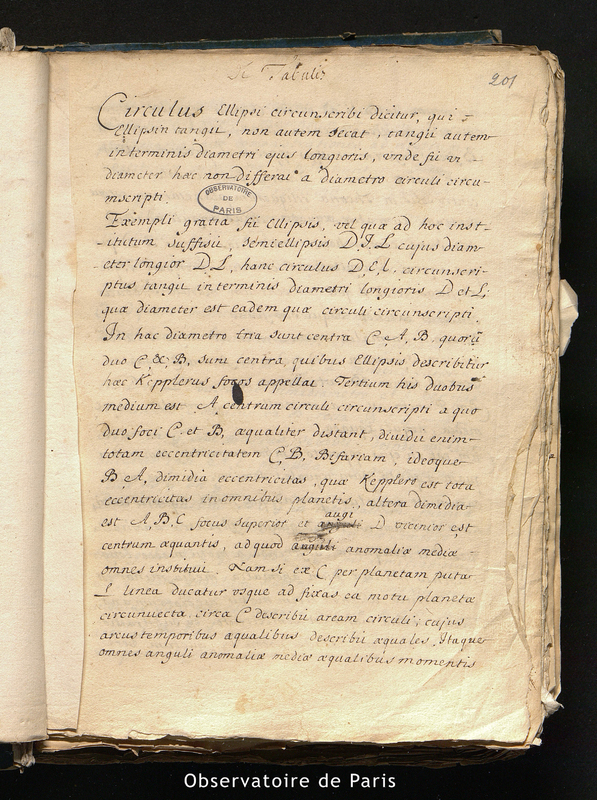 De Tabulis
201
Circulus Ellipsi circunscribi dicitur, qui
Ellipsin tangit, non autem secat, tangit autem
in terminis diametri ejus longioris, unde fit ut
diameter haec non differat a diametro circuli circu-
mscripti
OBSERVATOIRE
DE
PARIS
Exempli gratia fit Ellipsis, vel quae ad hoc inst-
itutum sufficit, semiellipsis D.I.L cujus diam-
eter longior D.L, hanc circulus D.E.L. circunscri-
ptus tangit in terminis diametri longioris D et L,
quae diameter est eadem quae circuli circunscripti.
In hac diametro tria sunt centra C, A, B, quorū
duo C, & B, sunt centra, quibus Ellipsis describitur
haec Kepplerus focos appellat. Tertium his duobus
medium est A centrum circuli circunscripti a quo
duo foci C et B, aequaliter distant, dividit enim
totam eccentricitatem C,B, Bifariam, ideoque
B A, dimidia eccentricitas, quae Kepplero est tota
eccentricitas in omnibus planetis, altera dimidia
augi
est A,B,C focus superior et D vicinior est
centrum aequantis, ad quod anguli anomaliae mediae
omnes instituit. Nam si ex C per planetam puta
I linea ducatur usque ad fixas ea motu planetae
circunvecta circa C describit aream circuli, cujus
arcus temporibus aequalibus describit aequales. Itaque
omnes anguli anomaliae mediae aequalibus momentis
Observatoire de Paris